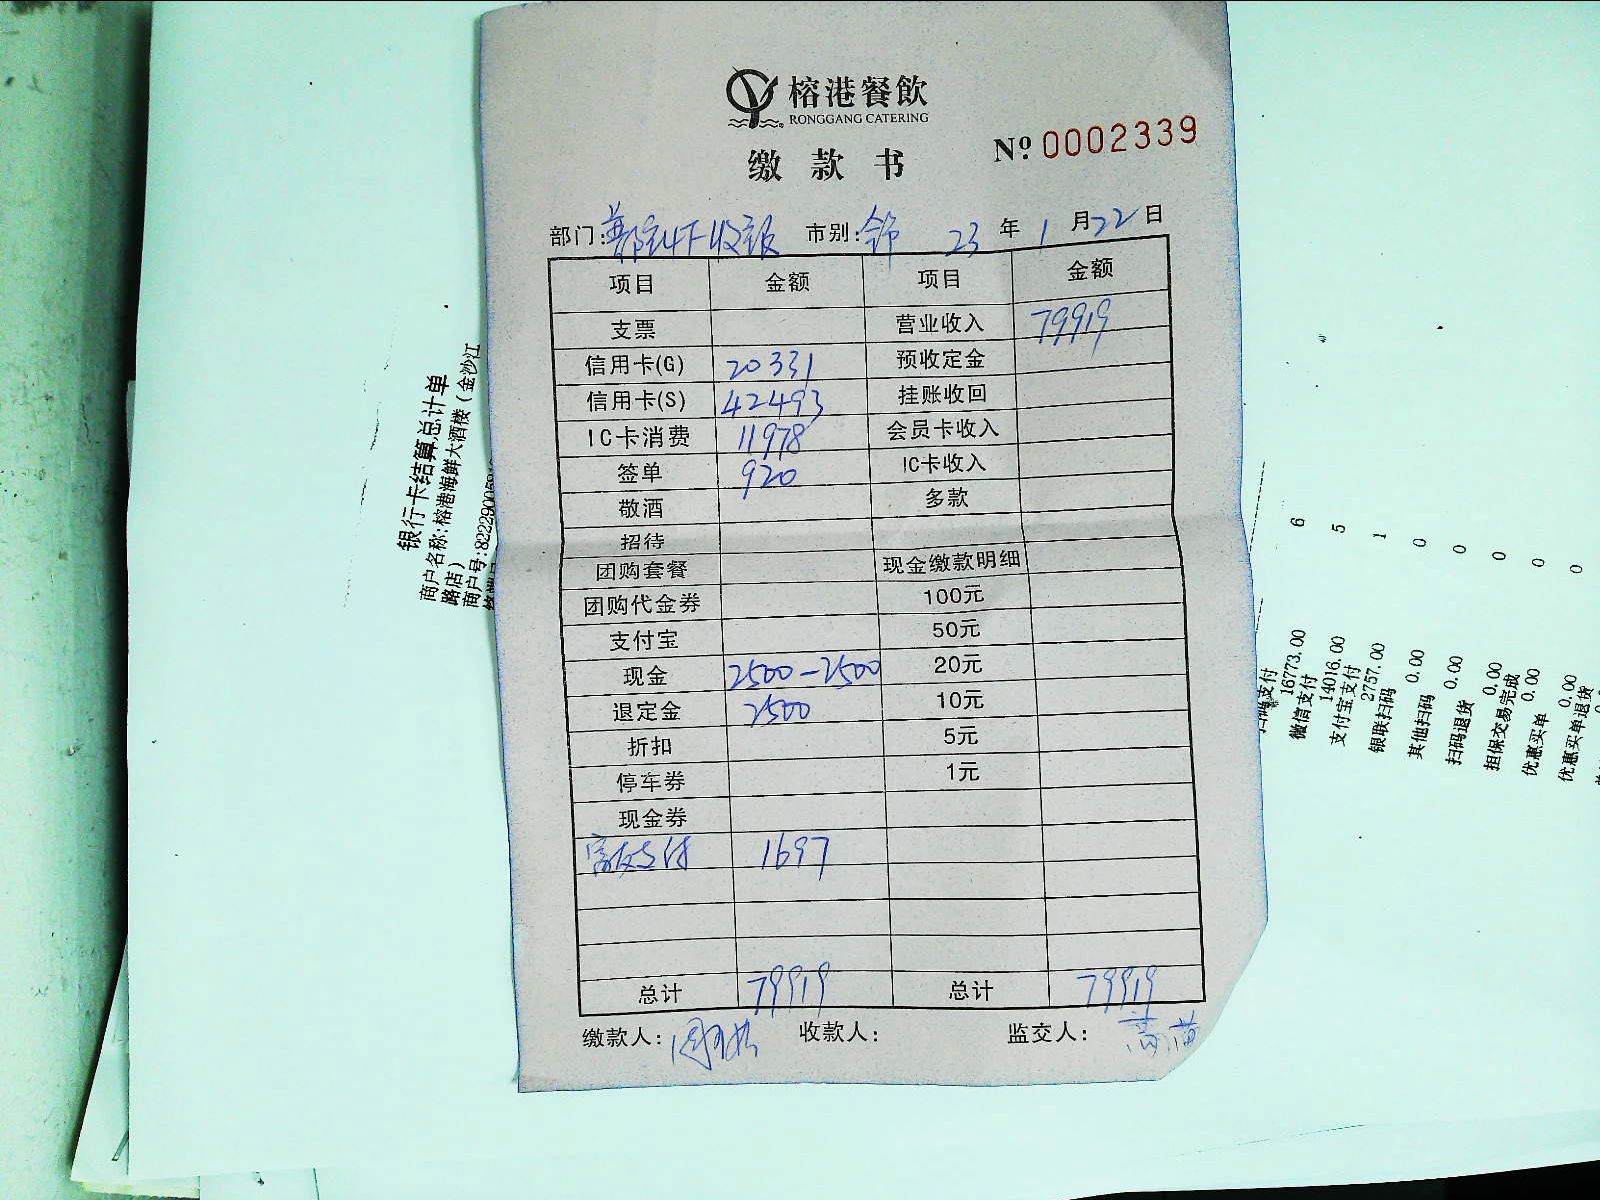 榕港餐飲
RONGGANG CATERING
缴款书
Nº 0002339
部门: 市别: 23 年 1 月 22 日
项目 金额 项目 金额
支票 营业收入 79919
信用卡(G) 20331 预收定金
信用卡(S) 42493 挂账收回
IC卡消费 11978 会员卡收入
签单 920 IC卡收入
敬酒 多款
招待
团购套餐 现金缴款明细
团购代金券 100元
支付宝 50元
现金 2500-2500 20元
退定金 2500 10元
折扣 5元
停车券 1元
现金券
支付 1697
总计 79919 总计 79919
缴款人: 收款人: 监交人:
银行卡结算总计单
商户名称:榕港海鲜大酒楼(金沙江
路店)
商户号:82229005
支付
16773.00 6
微信支付
14016.00 5
支付宝支付
2757.00 1
银联扫码
0.00 0
其他扫码
0.00 0
扫码退货
0.00 0
担保交易完成
0.00 0
优惠买单
0.00 0
优惠买单退货